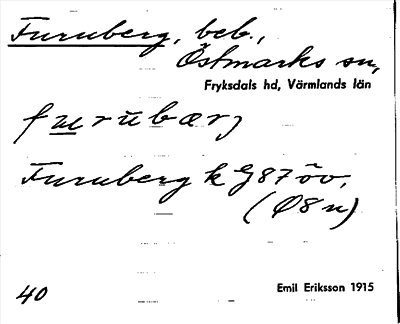 Furuberg, beb.,
Östmarks sn,
Fryksdals hd, Värmlands län
Furuberg k G87 öv.
(Ø8n)
40
Emil Eriksson 1915